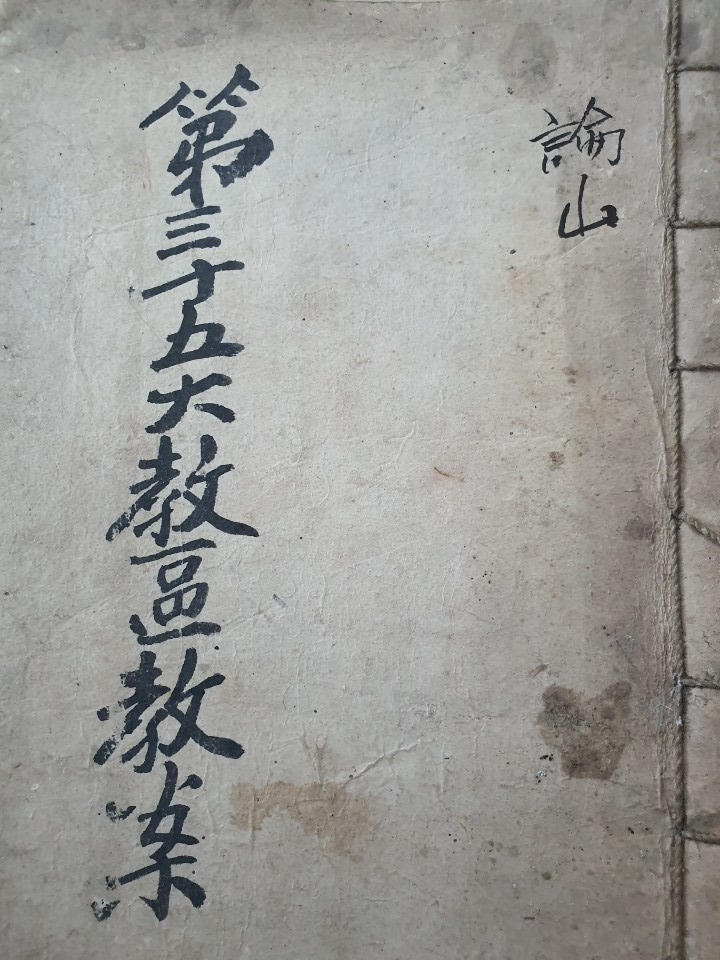 論山
第三十五大教區教案